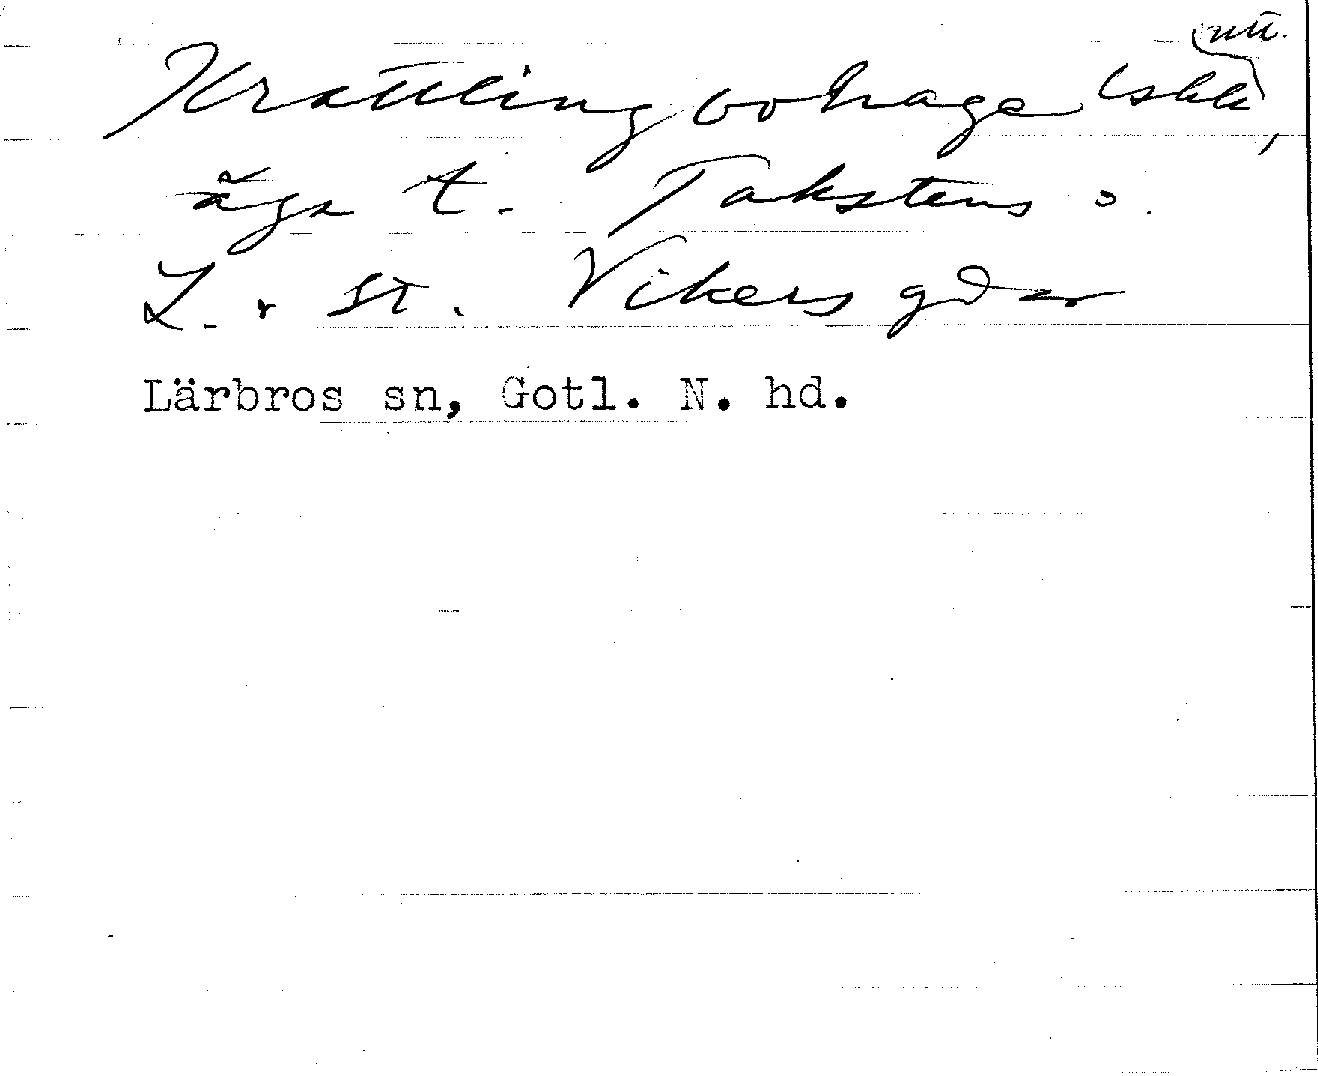 nu.
Krattlingbohage (skk),
äga t. Takstens o.
L. o St. Vikers gdar
Lärbros sn, Gotl. N. hd.